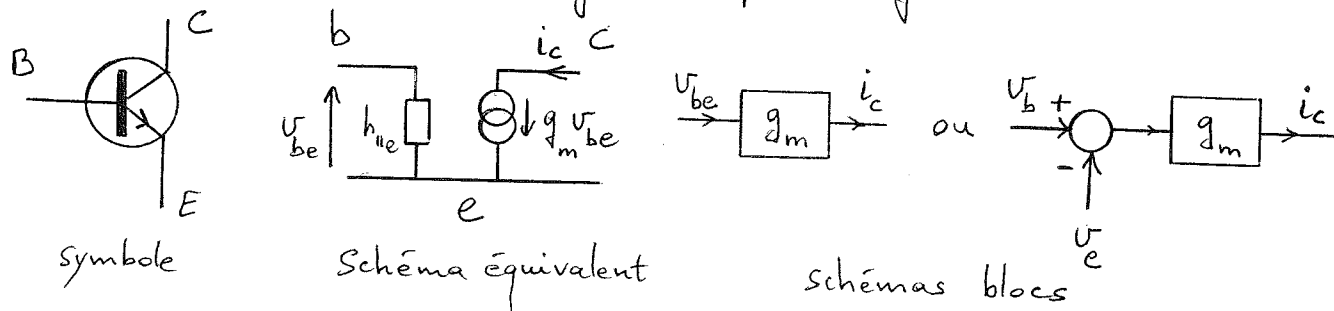 C
B
E
symbole
b
i_c C
v_be
h_11e
g_m v_be
e
Schéma équivalent
v_be
g_m
i_c
ou
v_b +
-
v_e
g_m
i_c
schémas blocs